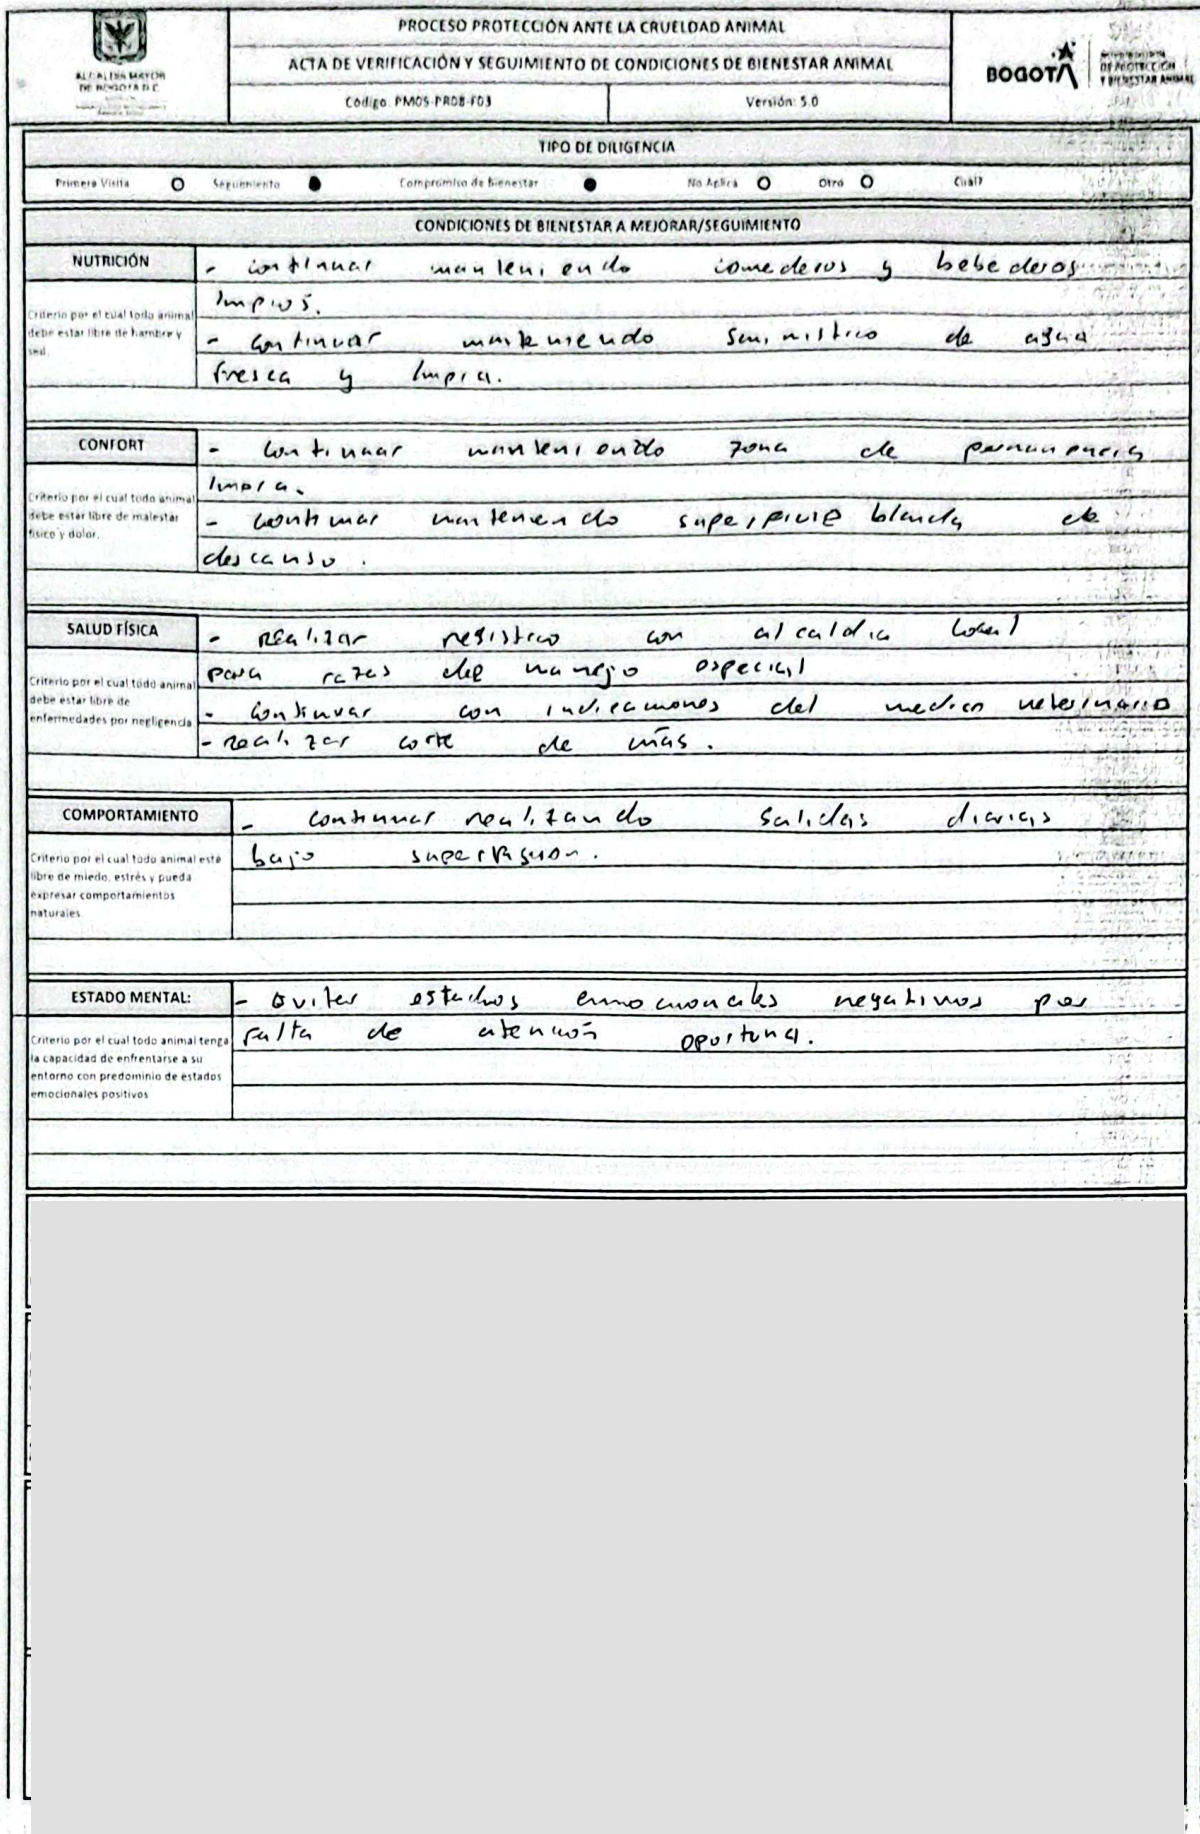 PROCESO PROTECCIÓN ANTE LA CRUELDAD ANIMAL
ACTA DE VERIFICACIÓN Y SEGUIMIENTO DE CONDICIONES DE BIENESTAR ANIMAL
Código: PM05-PR08-F03 Versión: 5.0
ALCALDÍA MAYOR
DE BOGOTÁ D.C.
BOGOTÁ
DE PROTECCIÓN
Y BIENESTAR ANIMAL
TIPO DE DILIGENCIA
Primera Visita Seguimiento Compromiso de Bienestar No Aplica Otro Cuál?
CONDICIONES DE BIENESTAR A MEJORAR/SEGUIMIENTO
NUTRICIÓN
Criterio por el cual todo animal
debe estar libre de hambre y
sed.
- continuar manteniendo comederos y bebederos
limpios.
- continuar manteniendo suministico de agua
fresca y limpia.
CONFORT
Criterio por el cual todo animal
debe estar libre de malestar
físico y dolor.
- continuar manteniendo zona de permanencia
limpia.
- continuar manteniendo superficie blanda de
descanso.
SALUD FÍSICA
Criterio por el cual todo animal
debe estar libre de
enfermedades por negligencia
- realizar registro con alcaldia local
para razas de manejo especial
- continuar con indicaciones del medico veterinario
- realizar corte de uñas.
COMPORTAMIENTO
Criterio por el cual todo animal esté
libre de miedo, estrés y pueda
expresar comportamientos
naturales.
- continuar realizando salidas diarias
bajo supervision.
ESTADO MENTAL:
Criterio por el cual todo animal tenga
la capacidad de enfrentarse a su
entorno con predominio de estados
emocionales positivos
- Evitar estados emocionales negativos por
falta de atención oportuna.